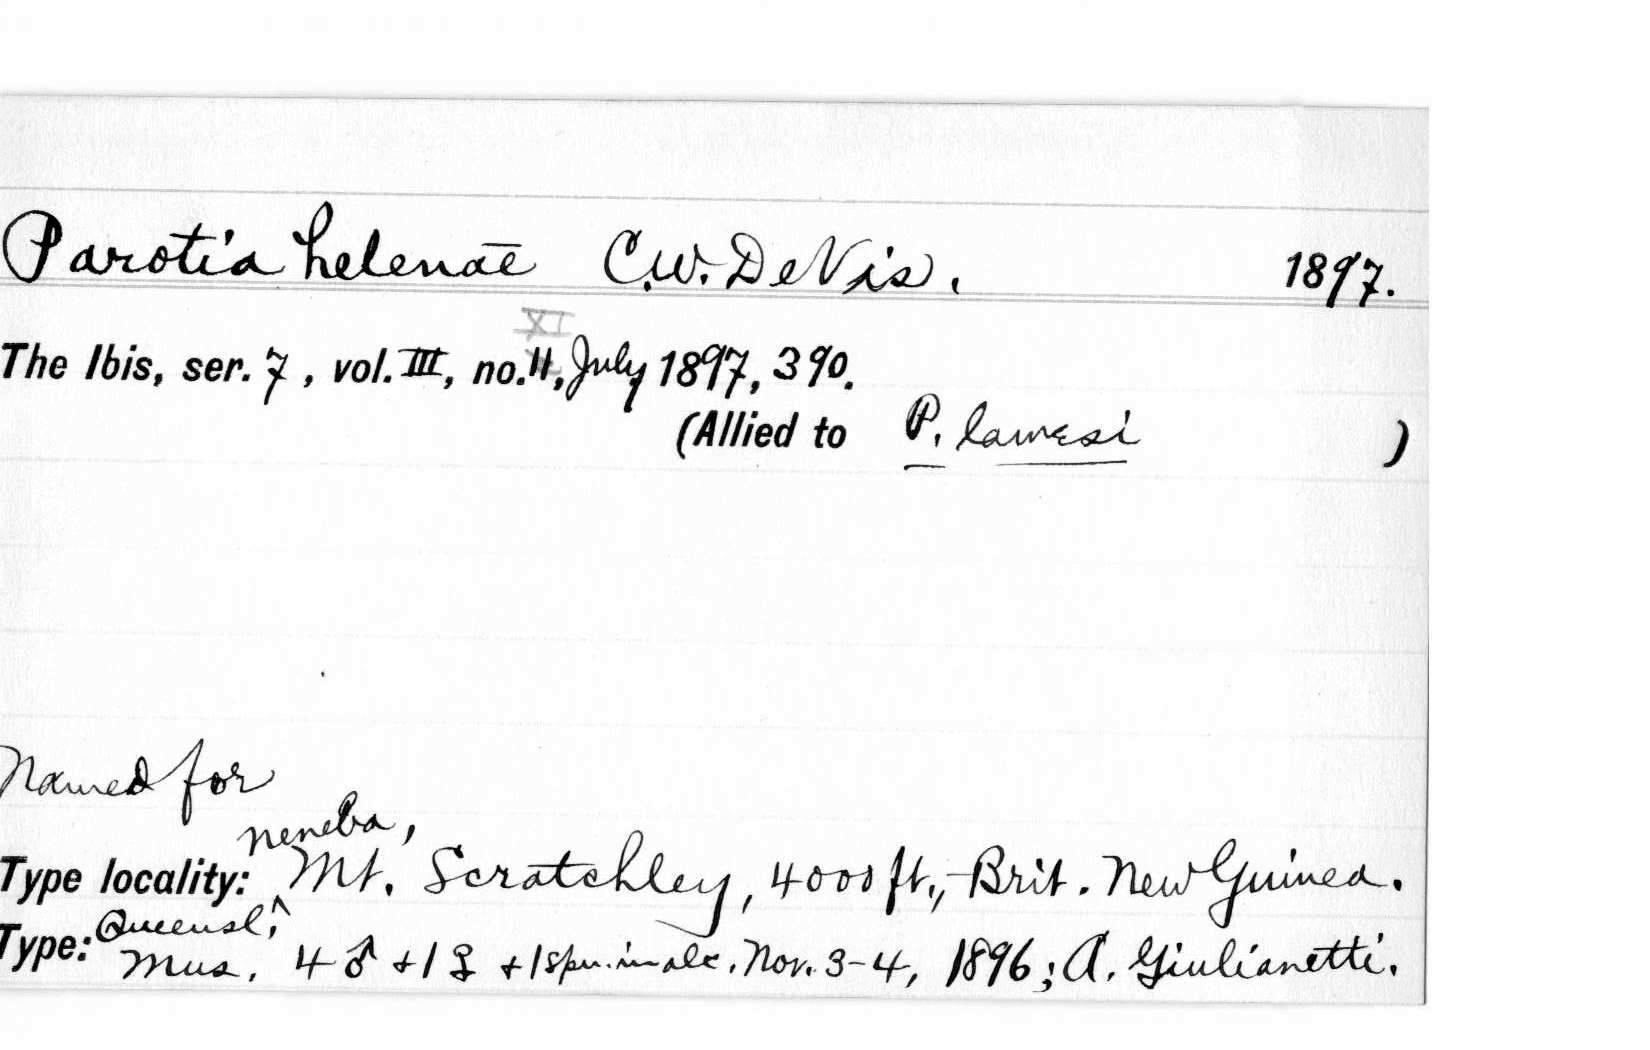 Parotia helenae C.W. De Vis. 1897.
XI
The Ibis, ser. 7, vol. III, no. 11, July 1897, 390.
(Allied to P. lawesi )
Named for
Neneba,
Type locality: Mt. Scratchley, 4000 ft., Brit. New Guinea.
Queensl.
Type: Mus. 4 ♂ + 1 ♀ + 1 in alc. Nov. 3-4, 1896; A. Giulianetti.